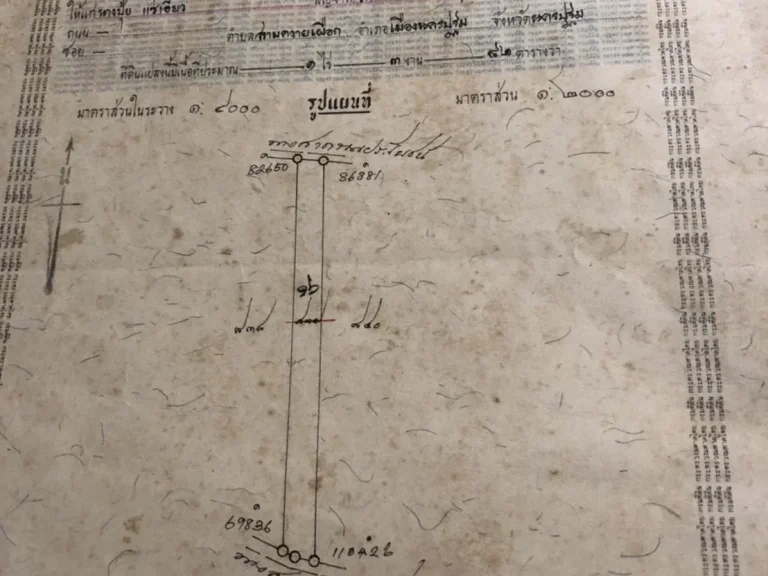 ให้แก่ นางปุ้ย แซ่เฮียว
ถนน —
ตำบล สามควายเผือก อำเภอ เมืองนครปฐม จังหวัด นครปฐม
ซอย —
ที่ดินแปลงนี้มีเนื้อที่ประมาณ ๑ ไร่ ๓ งาน ๔๒ ตารางวา
มาตราส่วนในระวาง ๑: ๔๐๐๐ รูปแผนที่ มาตราส่วน ๑: ๒๐๐๐
ทางสาธารณประโยชน์
82650 86381
น
๘๔๐
69836
110426